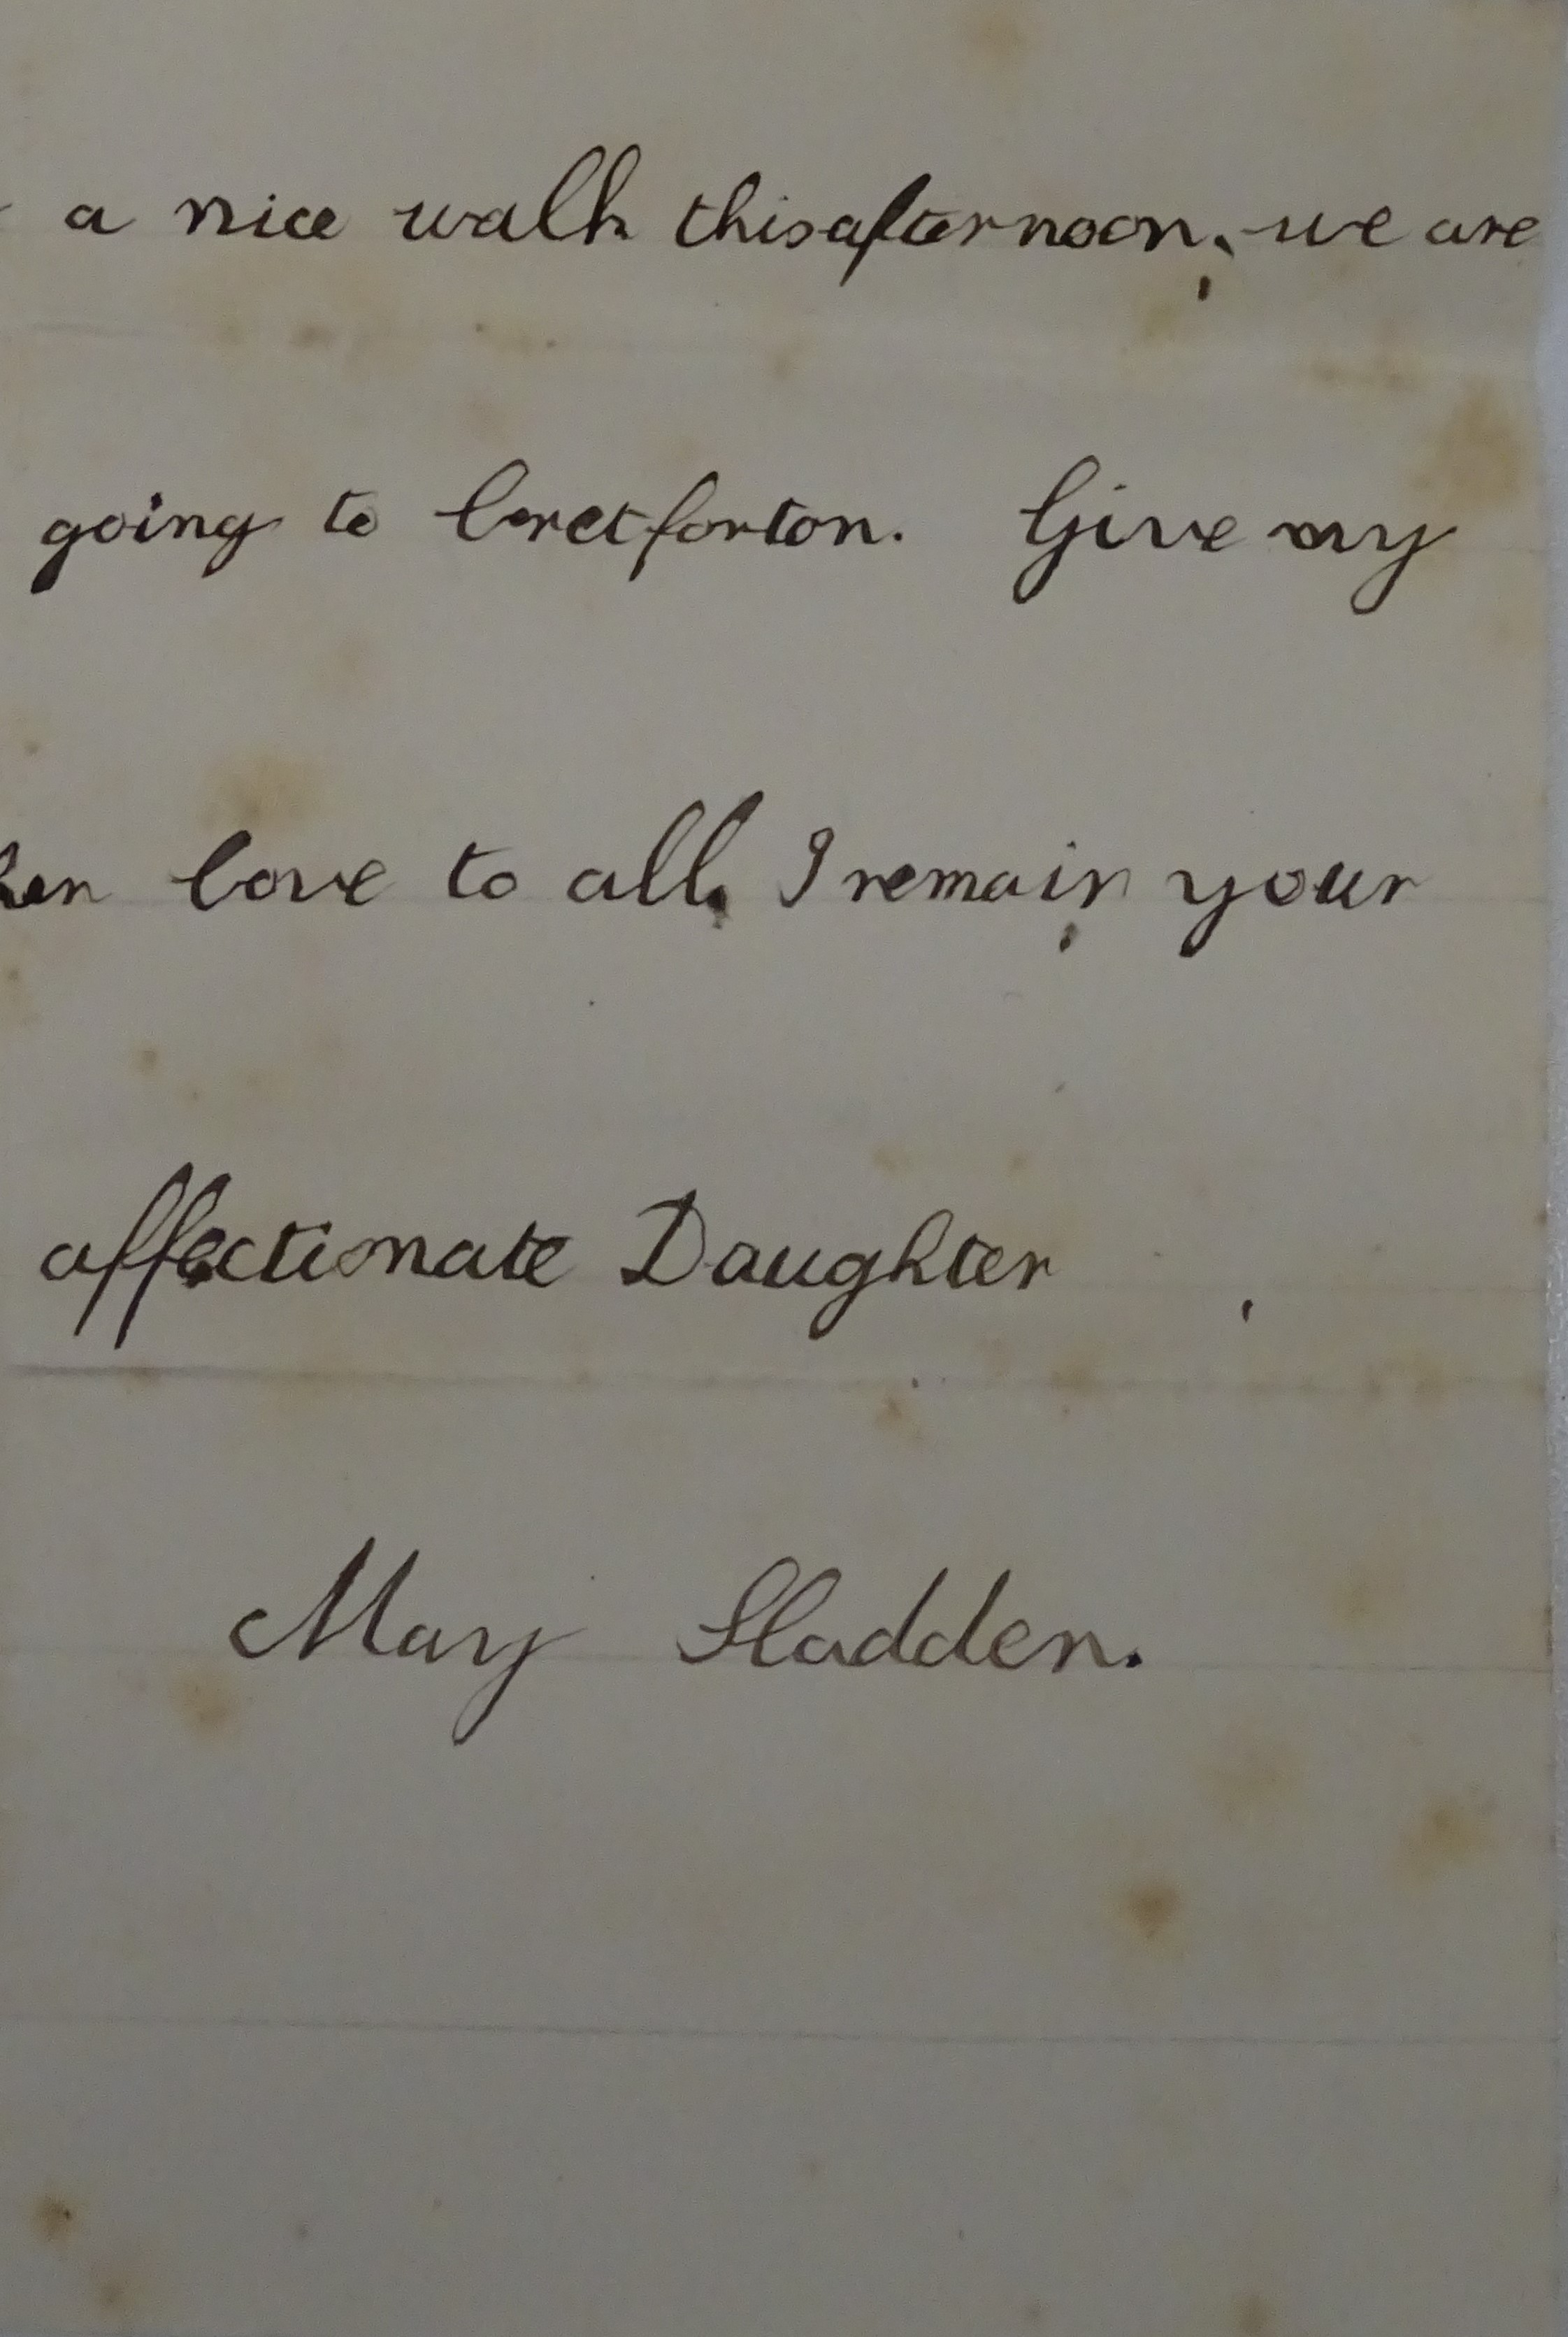 a nice walk this afternoon, we are
going to bretforton. Give my
love to all, I remain your
affectionate Daughter
Mary Sladden.